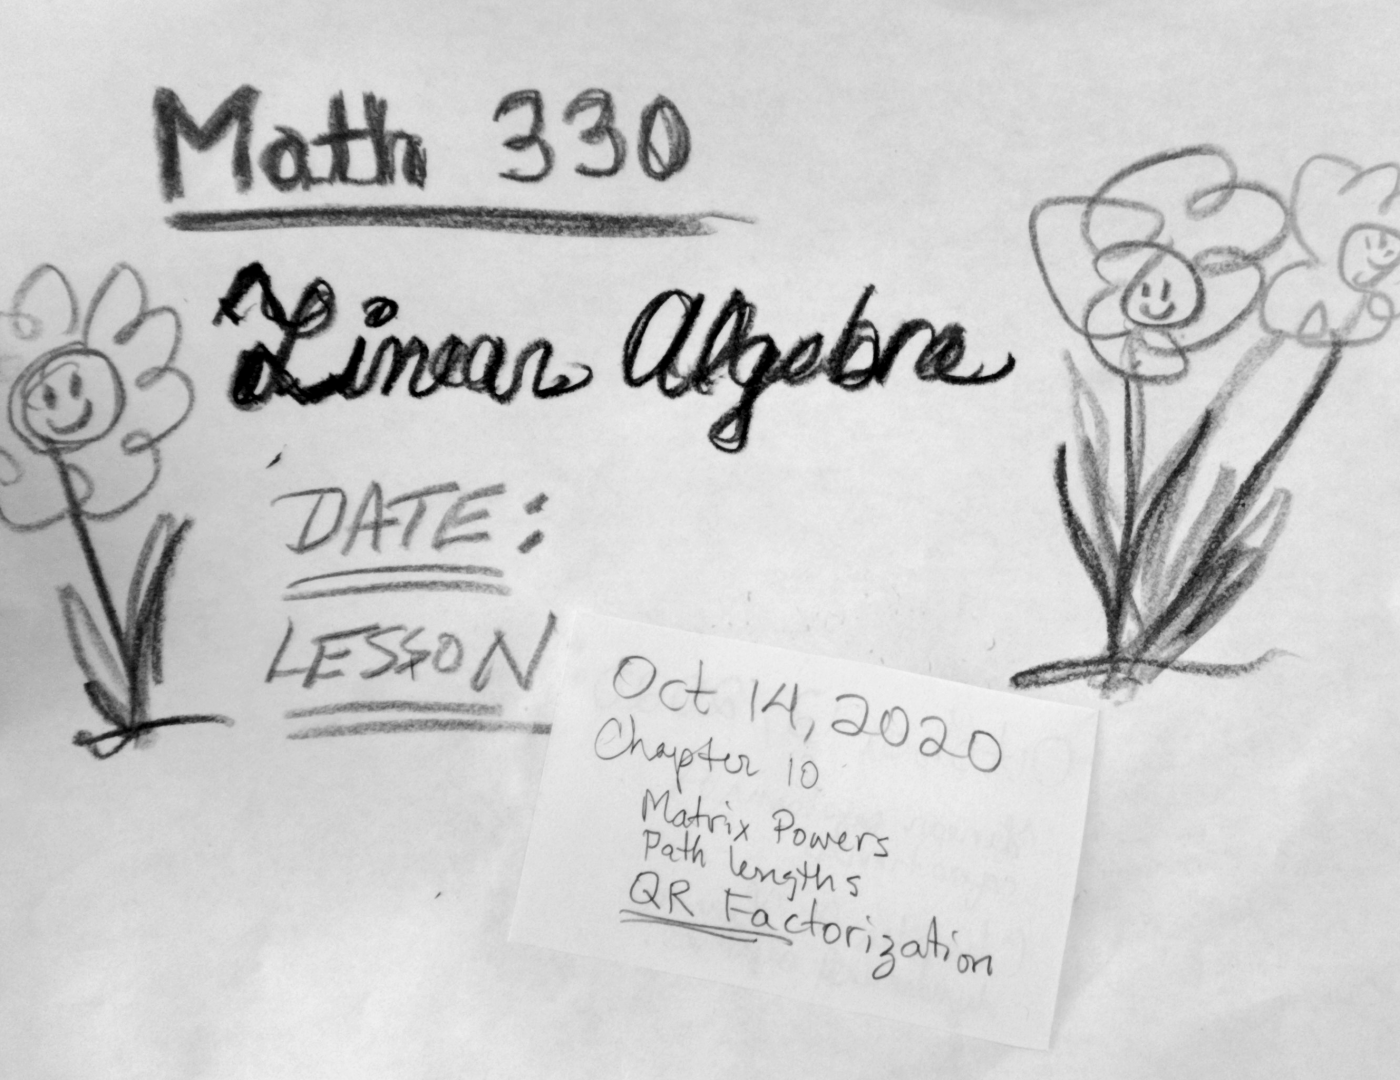 Math 330
Linear Algebra
DATE:
LESSON
Oct 14, 2020
Chapter 10
Matrix Powers
Path lengths
QR Factorization